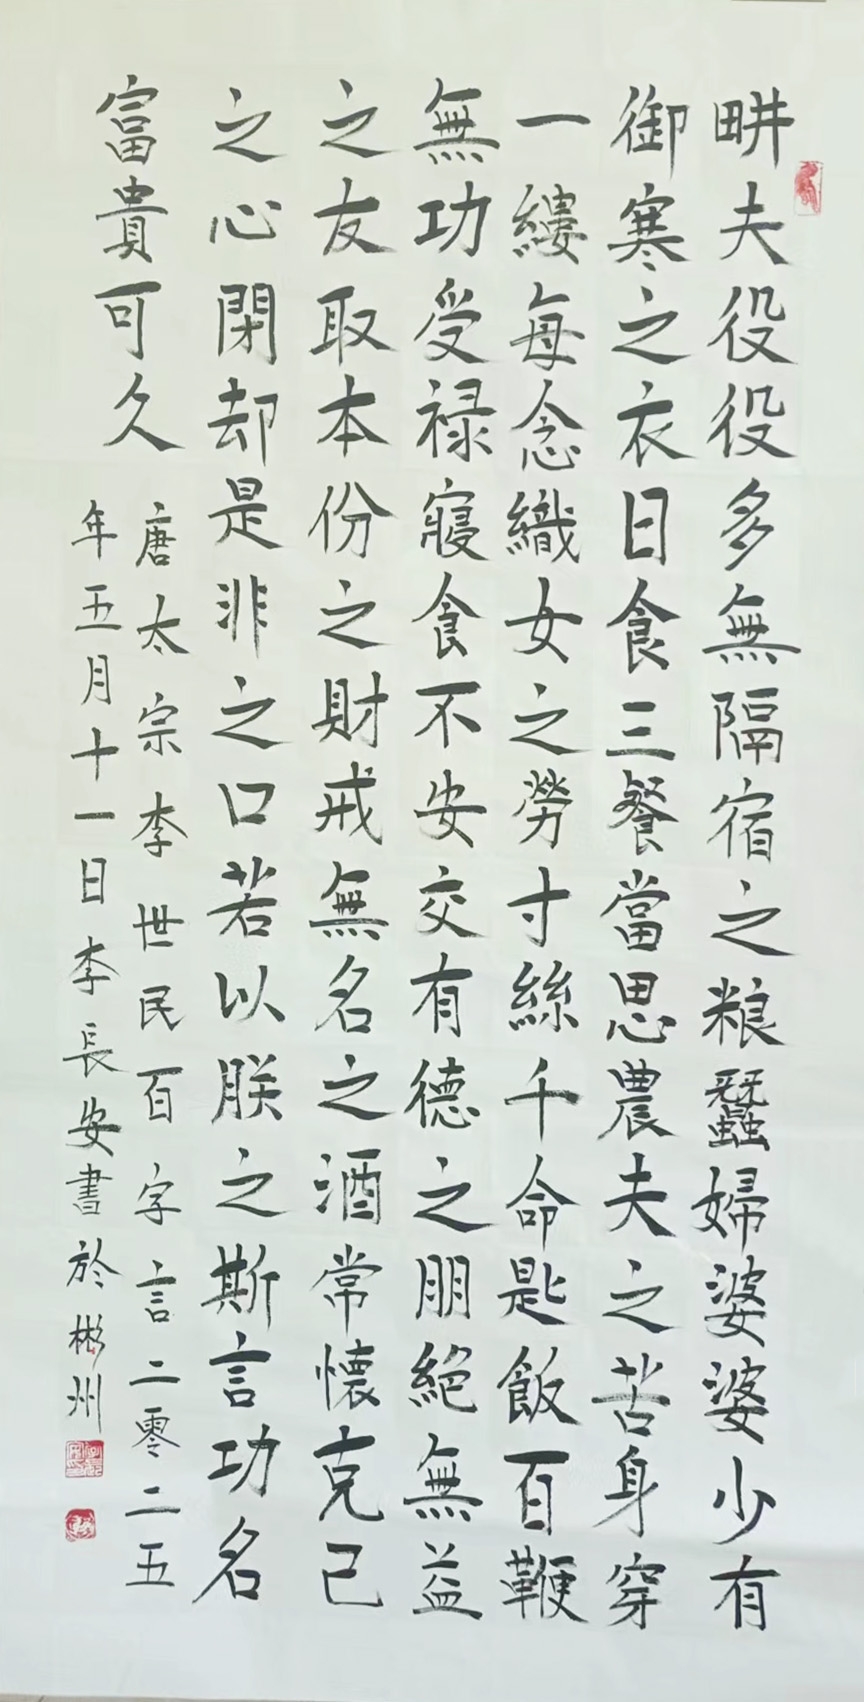 畊夫役役多無隔宿之粮蠶婦婆婆少有
御寒之衣日食三餐當思農夫之苦身穿
一縷每念織女之勞寸絲千命匙飯百鞭
無功受禄寢食不安交有德之朋絕無益
之友取本份之財戒無名之酒常懷克己
之心閉却是非之口若以朕之斯言功名
富貴可久
唐太宗李世民百字言二零二五
年五月十一日李長安書於彬州